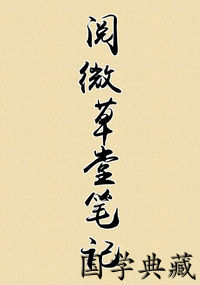 阅微草堂笔记
国学典藏